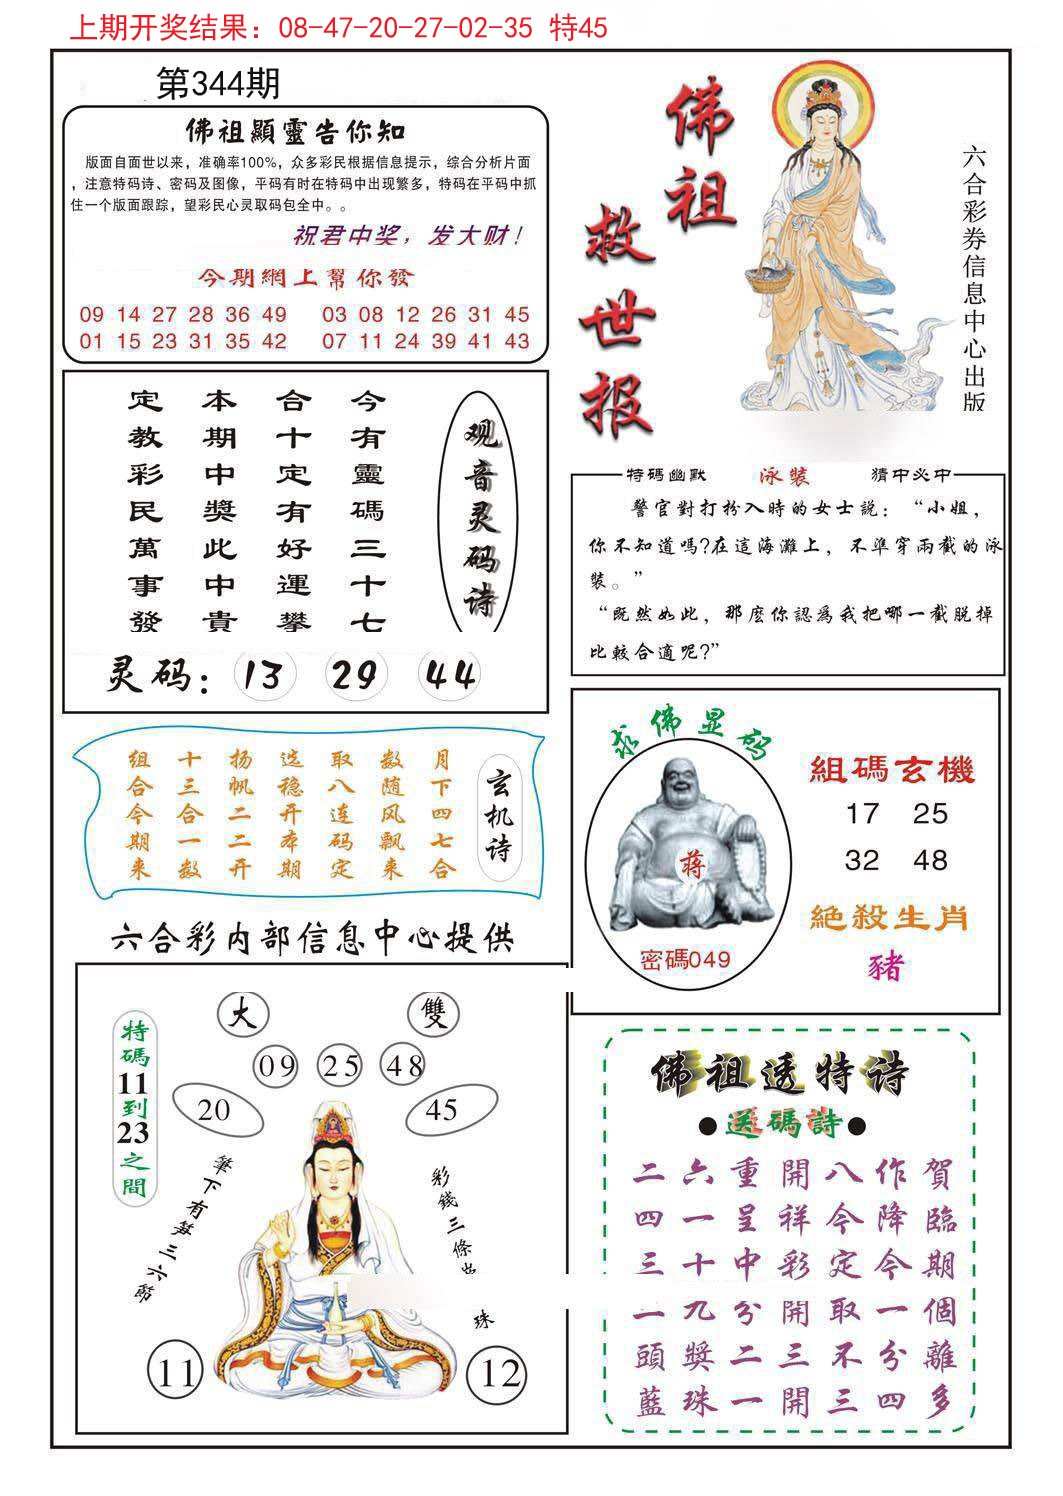 上期开奖结果：08-47-20-27-02-35 特45
第344期
佛祖顯靈告你知
版面自面世以来，准确率100%，众多彩民根据信息提示，综合分析片面
，注意特码诗、密码及图像，平码有时在特码中出现繁多，特码在平码中抓
住一个版面跟踪，望彩民心灵取码包全中。。
祝君中奖，发大财！
今期網上幫你發
09 14 27 28 36 49 03 08 12 26 31 45
01 15 23 31 35 42 07 11 24 39 41 43
佛祖
救世报
六合彩券信息中心出版
观音灵码诗
今有靈碼三十七
合十定有好運攀
本期中獎此中貴
定教彩民萬事發
灵码：13 29 44
特碼幽默 泳裝 猜中必中
警官對打扮入時的女士説：“小姐，
你不知道嗎?在這海灘上，不準穿兩截的泳
裝。”
“既然如此，那麽你認爲我把哪一截脱掉
比較合適呢?”
玄机诗
月下四七合
数随风飘来
取八连码定
选稳开本期
扬帆二二开
十三合一数
组合今期来
求佛显码
蒋
密碼049
組碼玄機
17 25
32 48
絶殺生肖
豬
六合彩内部信息中心提供
大 雙
09 25 48
20 45
特碼11到23之間
筆下有筭三六節
彩錢三條 珠
11 12
佛祖透特诗
●送碼詩●
賀臨期個離多
作降今一分四
八今定取不三
開祥彩開三開
重呈中分二一
六一十九獎珠
二四三一頭藍